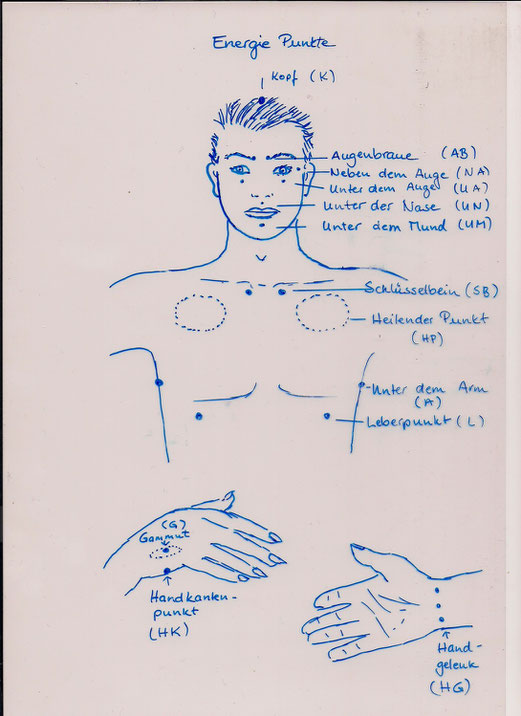 Energie Punkte
Kopf (K)
Augenbraue (AB)
Neben dem Auge (NA)
Unter dem Auge (UA)
Unter der Nase (UN)
Unter dem Mund (UM)
Schlüsselbein (SB)
Heilender Punkt
(HP)
Unter dem Arm
(A)
Leberpunkt (L)
(G)
Gammut
Handkanken-
punkt
(HK)
Hand-
geleuk
(HG)